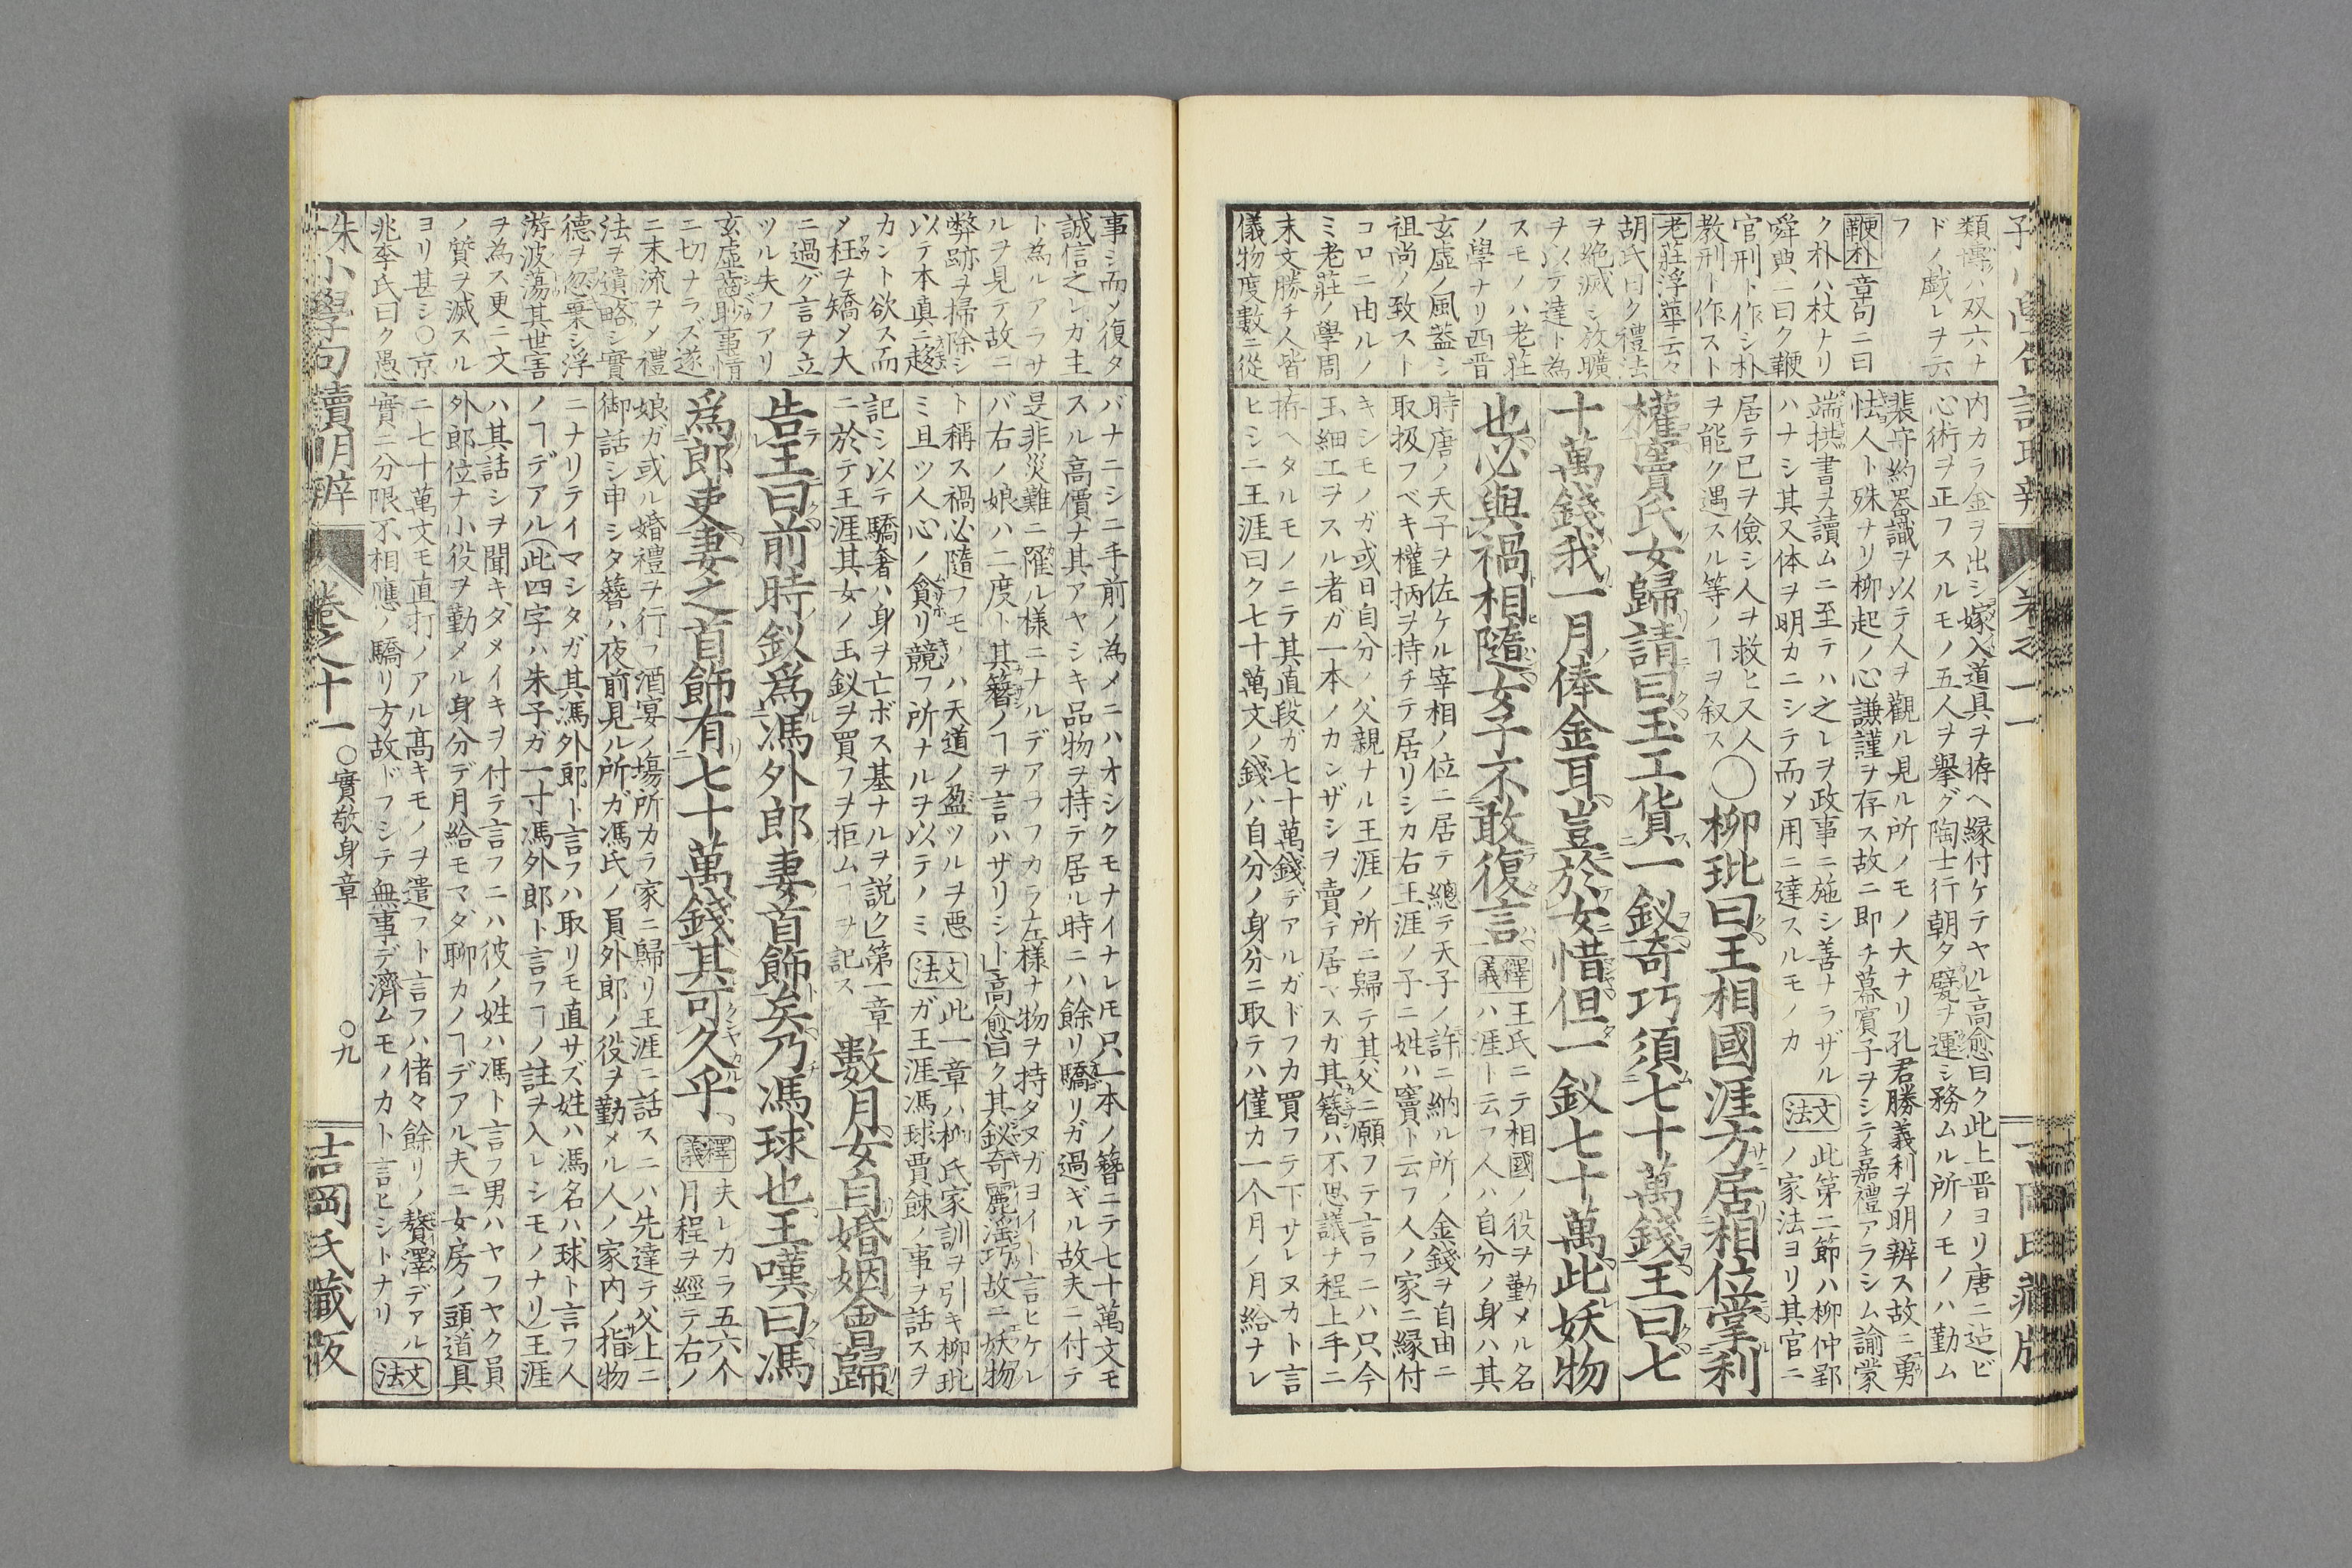 類博ハ双六ナ
ドノ戯レヲ云
フ
鞭朴 章句ニ曰
ク朴ハ杖ナリ
舜典ニ曰ク鞭
官刑ト作シ朴
教刑ト作スト
老莊浮華云々
胡氏曰ク禮法
ヲ絶滅シ放曠
ヲ以テ達ト為
スモノハ老莊
ノ學ナリ西晋
玄虚ノ風蓋シ
祖尚ノ致スト
コロニ由ルノ
ミ老莊ノ學周
末文勝チ人皆
儀物度數ニ從
内カラ金ヲ出シ嫁入道具ヲ拵ヘ縁付ケテヤル高愈曰ク此上晋ヨリ唐ニ迨ビ
心術ヲ正フスルモノ五人ヲ擧グ陶士行朝夕甓ヲ運シ務ムル所ノモノハ勤ム
裴行約器識ヲ以テ人ヲ觀ル見ル所ノモノ大ナリ孔君勝義利ヲ明辨ス故ニ勇
怯人ト殊ナリ柳起ノ心謙謹ヲ存ス故ニ即チ幕賓子ヲシテ嘉禮アラシム諭蒙
端拱書ヲ讀ムニ至テハ之レヲ政事ニ施シ善ナラザル 文法 此第二節ハ柳仲郢
ハナシ其又体ヲ明カニシテ而メ用ニ達スルモノカ ノ家法ヨリ其官ニ
居テ已ヲ儉シ人ヲ救ヒス人
ヲ能ク遇スル等ノヿヲ叙ス
〇柳玭曰王相國涯方居相位掌利
權竇氏女歸請曰玉工貨一釵奇巧須七十萬錢王曰七
十萬錢我一月俸金耳豈於女惜但一釵七十萬此妖物
也必與禍相隨女子不敢復言
釋義 王氏ニテ相國ノ役ヲ勤メル名
ハ涯ト云フ人ハ自分ノ身ハ其
時唐ノ天子ヲ佐ケル宰相ノ位ニ居テ總テ天子ノ許ニ納ル所ノ金錢ヲ自由ニ
取扱フベキ權柄ヲ持チテ居リシカ右王涯ノ子ニ姓ハ竇ト云フ人ノ家ニ縁付
キシモノガ或日自分ノ父親ナル王涯ノ所ニ歸テ其父ニ願フテ言フニハ只今
玉細工ヲスル者ガ一本ノカンザシヲ賣テ居マスガ其簪ハ不思議ナ程上手ニ
拵ヘタルモノニテ其直段ガ七十萬錢デアルガドフカ買フテ下サレヌカト言
ヒシニ王涯曰ク七十萬文ノ錢ハ自分ノ身分ニ取テハ僅カ一个月ノ月給ナレ
事シ而メ復タ
誠信之レガ主
ト為ルアラサ
ルヲ見テ故ニ
弊跡ヲ掃除シ
以テ本眞ニ趨
カント欲ス而
メ枉ヲ矯メ大
ニ過グ言ヲ立
ツル失フアリ
玄虚齒眇事情
ニ切ナラズ遂
ニ末流ヲメ禮
法ヲ遺略シ實
德ヲ忽棄シ浮
游波蕩其世害
ヲ為ス更ニ文
ノ質ヲ滅スル
ヨリ甚シ〇京
兆李氏曰ク愚
バナニシニ手前ノ為メニハオシクモナイナレ𪜈只一本ノ簪ニテ七十萬文モ
スル高價ナ其アヤシキ品物ヲ持テ居ル時ニハ餘リ驕リガ過ギル故夫ニ付テ
是非災難ニ罹ル様ニナルデアラフカラ左様ナ物ヲ持タヌガヨイト言ヒケレ
バ右ノ娘ハ二度ト其簪ノヿヲ言ハザリシト高愈曰ク其釵奇麗淫巧故ニ妖物
ト稱ス禍必隨フモノハ天道ノ盈ツルヲ惡
ミ且ツ人心ノ貪リ競フ所ナルヲ以テノミ
文法 此一章ハ柳氏家訓ヲ引キ柳玭
ガ王涯馮球賈餗ノ事ヲ話スヲ
記シ以テ驕奢ハ身ヲ亡ボス基ナルヲ説ク第一章
ニ於テ王涯其女ノ玉釵ヲ買フヲ拒ムヿヲ記ス
數月女自婚姻會歸
告王曰前時釵爲馮外郎妻首飾矣乃馮球也王嘆曰馮
爲郎吏妻之首飾有七十萬錢其可久乎
釋義 夫レカラ五六个
月程ヲ經テ右ノ
娘ガ或ル婚禮ヲ行フ酒宴ノ塲所カラ家ニ歸リ王涯ニ話スニハ先達テ父上ニ
御話シ申シタ簪ハ夜前見ル所ガ馮氏ノ員外郎ノ役ヲ勤メル人ノ家内ノ指物
ニナリテイマシタガ其馮外郎ト言フハ取リモ直サズ姓ハ馮名ハ球ト言フ人
ノヿデアル(此四字ハ朱子ガ一寸馮外郎ト言フヿノ註ヲ入レシモノナリ)王涯
ハ其話シヲ聞キタメイキヲ付テ言フニハ彼ノ姓ハ馮ト言フ男ハヤフヤク員
外郎位ナ小役ヲ勤メル身分デ月給モマダ聊カノヿデアル夫ニ女房ノ頭道具
ニ七十萬文モ直打ノアル高キモノヲ遣フト言フハ偖々餘リノ贅澤デアル
實ニ分限不相應ノ驕リ方故ドフシテ無事デ濟ムモノカト言ヒシトナリ
文法
朱子小學句讀明辨 卷之十一 〇實敬身章 〇九 吉岡氏藏版